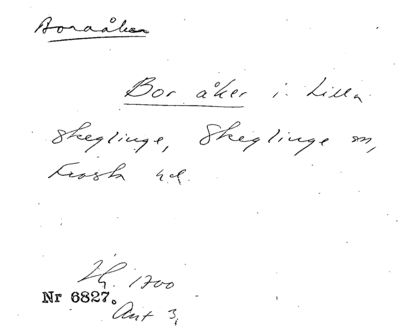 Boraåker
Bor åker i Lilla
Skeglinge, Skeglinge sn,
Frosta hd.
1700
Nr 6827.
Ant 3,